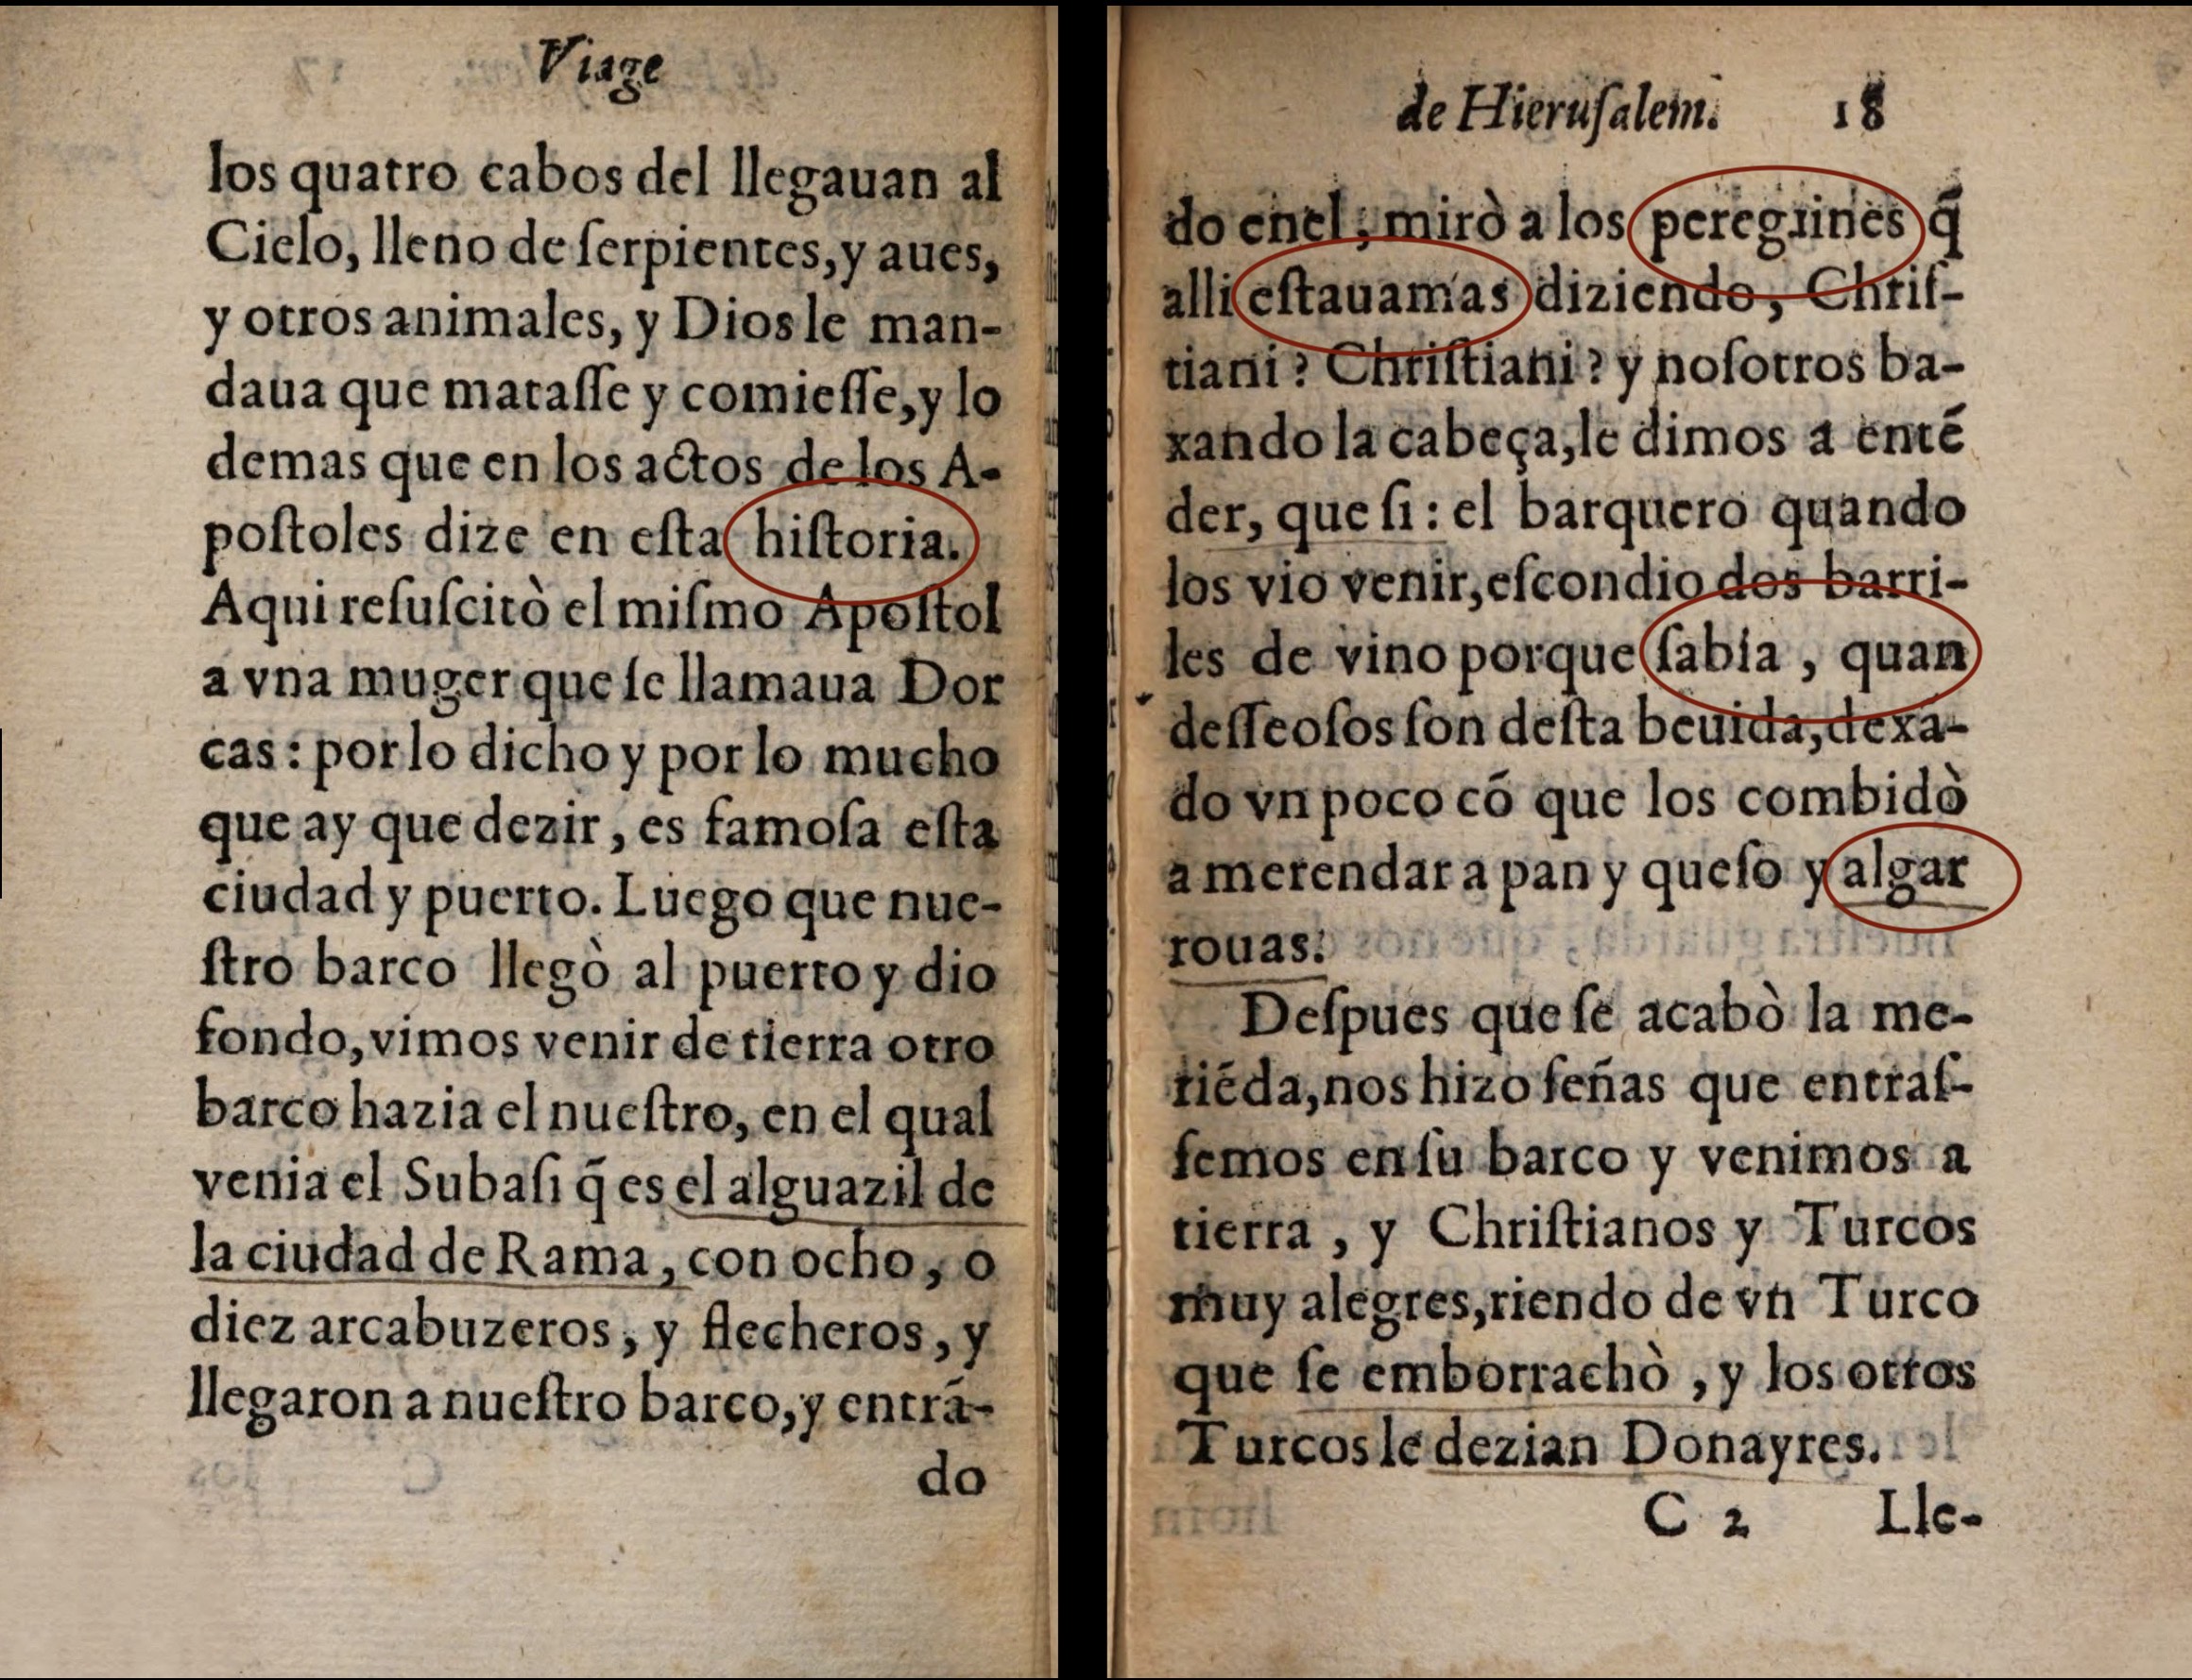 Viage
los quatro cabos del llegauan al
Cielo, lleno de ſerpientes,y aues,
y otros animales, y Dios le man-
daua que mataſſe y comieſſe,y lo
demas que en los actos de los A-
poſtoles dize en eſta hiſtoria.
Aqui reſuſcitò el miſmo Apoſtol
a vna muger que ſe llamaua Dor
cas : por lo dicho y por lo mucho
que ay que dezir , es famoſa eſta
ciudad y puerto. Luego que nue-
ſtro barco llegò al puerto y dio
fondo,vimos venir de tierra otro
barco hazia el nueſtro, en el qual
venia el Subaſi q̃ es el alguazil de
la ciudad de Rama, con ocho, o
diez arcabuzeros, y flecheros, y
llegaron a nueſtro barco,y entrā-
do
de Hieruſalem. 18
do enel, mirò a los peregrines q̃
alli eſtauamas diziendo, Chriſ-
tiani ? Chriſtiani ? y noſotros ba-
xando la cabeça,le dimos a entē
der, que ſi : el barquero quando
los vio venir,eſcondio dos barri-
les de vino porque ſabia , quan
deſſeoſos ſon deſta beuida,dexā-
do vn poco cō que los combidò
a merendar a pan y queſo y algar
rouas.
Deſpues que ſe acabò la me-
riēda,nos hizo ſeñas que entraſ-
ſemos en ſu barco y venimos a
tierra , y Chriſtianos y Turcos
muy alegres,riendo de vn Turco
que ſe emborrachò , y los otros
Turcos le dezian Donayres.
C 2 Lle-